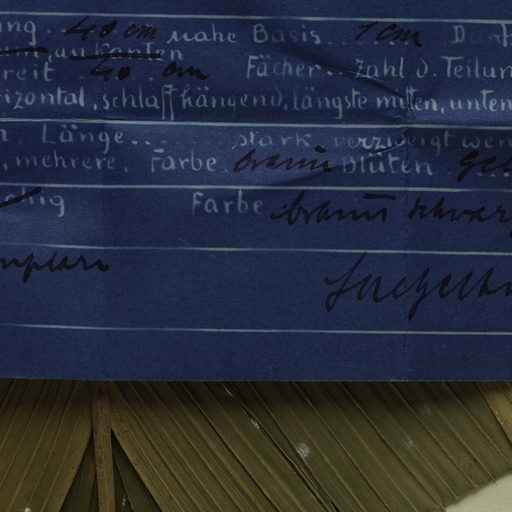 40 cm nahe Basis..... 1 cm
um, an Kanten
reit . 40 . cm Fächer... Zahl d. Teilun
rizontal, schlaff hängend, längste mitten, unten
n. Länge... stark verzweigt wen
, mehrere. Farbe braun Blüten gel
Farbe braun schwarz
mplare